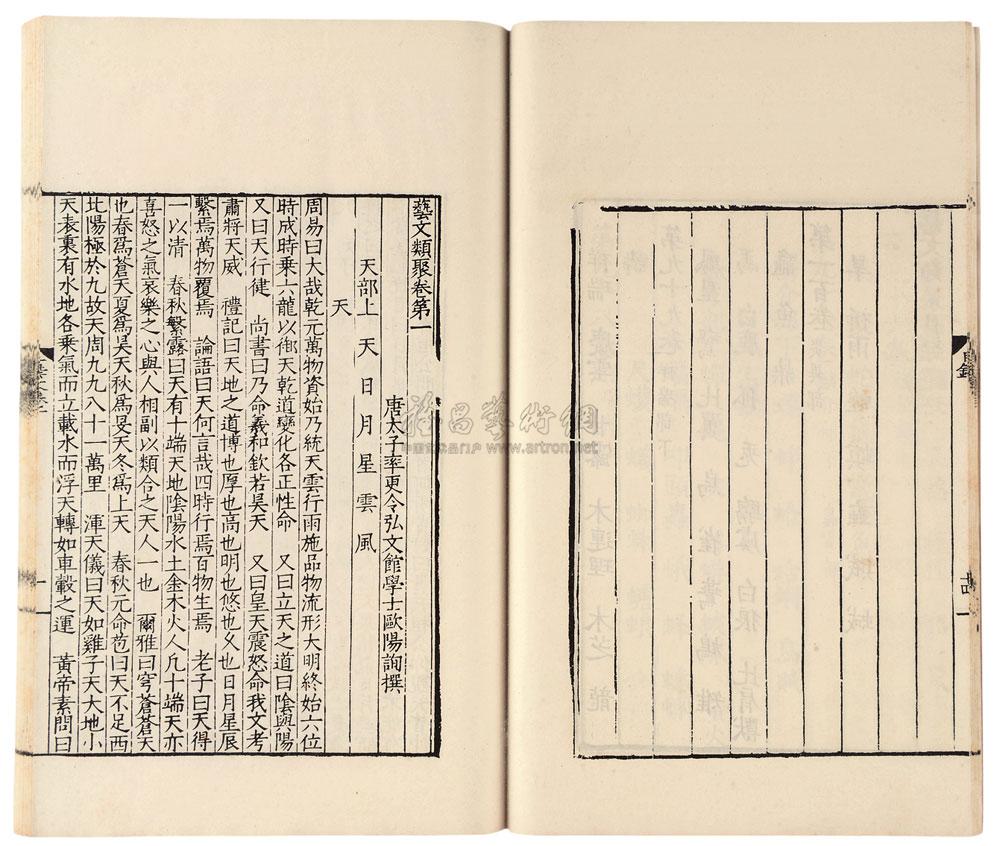 目錄
藝文類聚卷第一
唐太子率更令弘文館學士歐陽詢撰
天部上 天 日 月 星 雲 風
天
周易曰大哉乾元萬物資始乃統天雲行雨施品物流形大明終始六位
時成時乘六龍以御天乾道變化各正性命 又曰立天之道曰陰與陽
又曰天行健 尚書曰乃命羲和欽若昊天 又曰皇天震怒命我文考
肅將天威 禮記曰天地之道博也厚也高也明也悠也久也日月星辰
繫焉萬物覆焉 論語曰天何言哉四時行焉百物生焉 老子曰天得
一以清 春秋繁露曰天有十端天地陰陽水土金木火人凡十端天亦
喜怒之氣哀樂之心與人相副以類合之天人一也 爾雅曰穹蒼蒼天
也春爲蒼天夏爲昊天秋爲旻天冬爲上天 春秋元命苞曰天不足西
北陽極於九故天周九九八十一萬里 渾天儀曰天如雞子天大地小
天表裏有水地各乘氣而立載水而浮天轉如車轂之運 黃帝素問曰
雅昌藝術網
www.artron.net